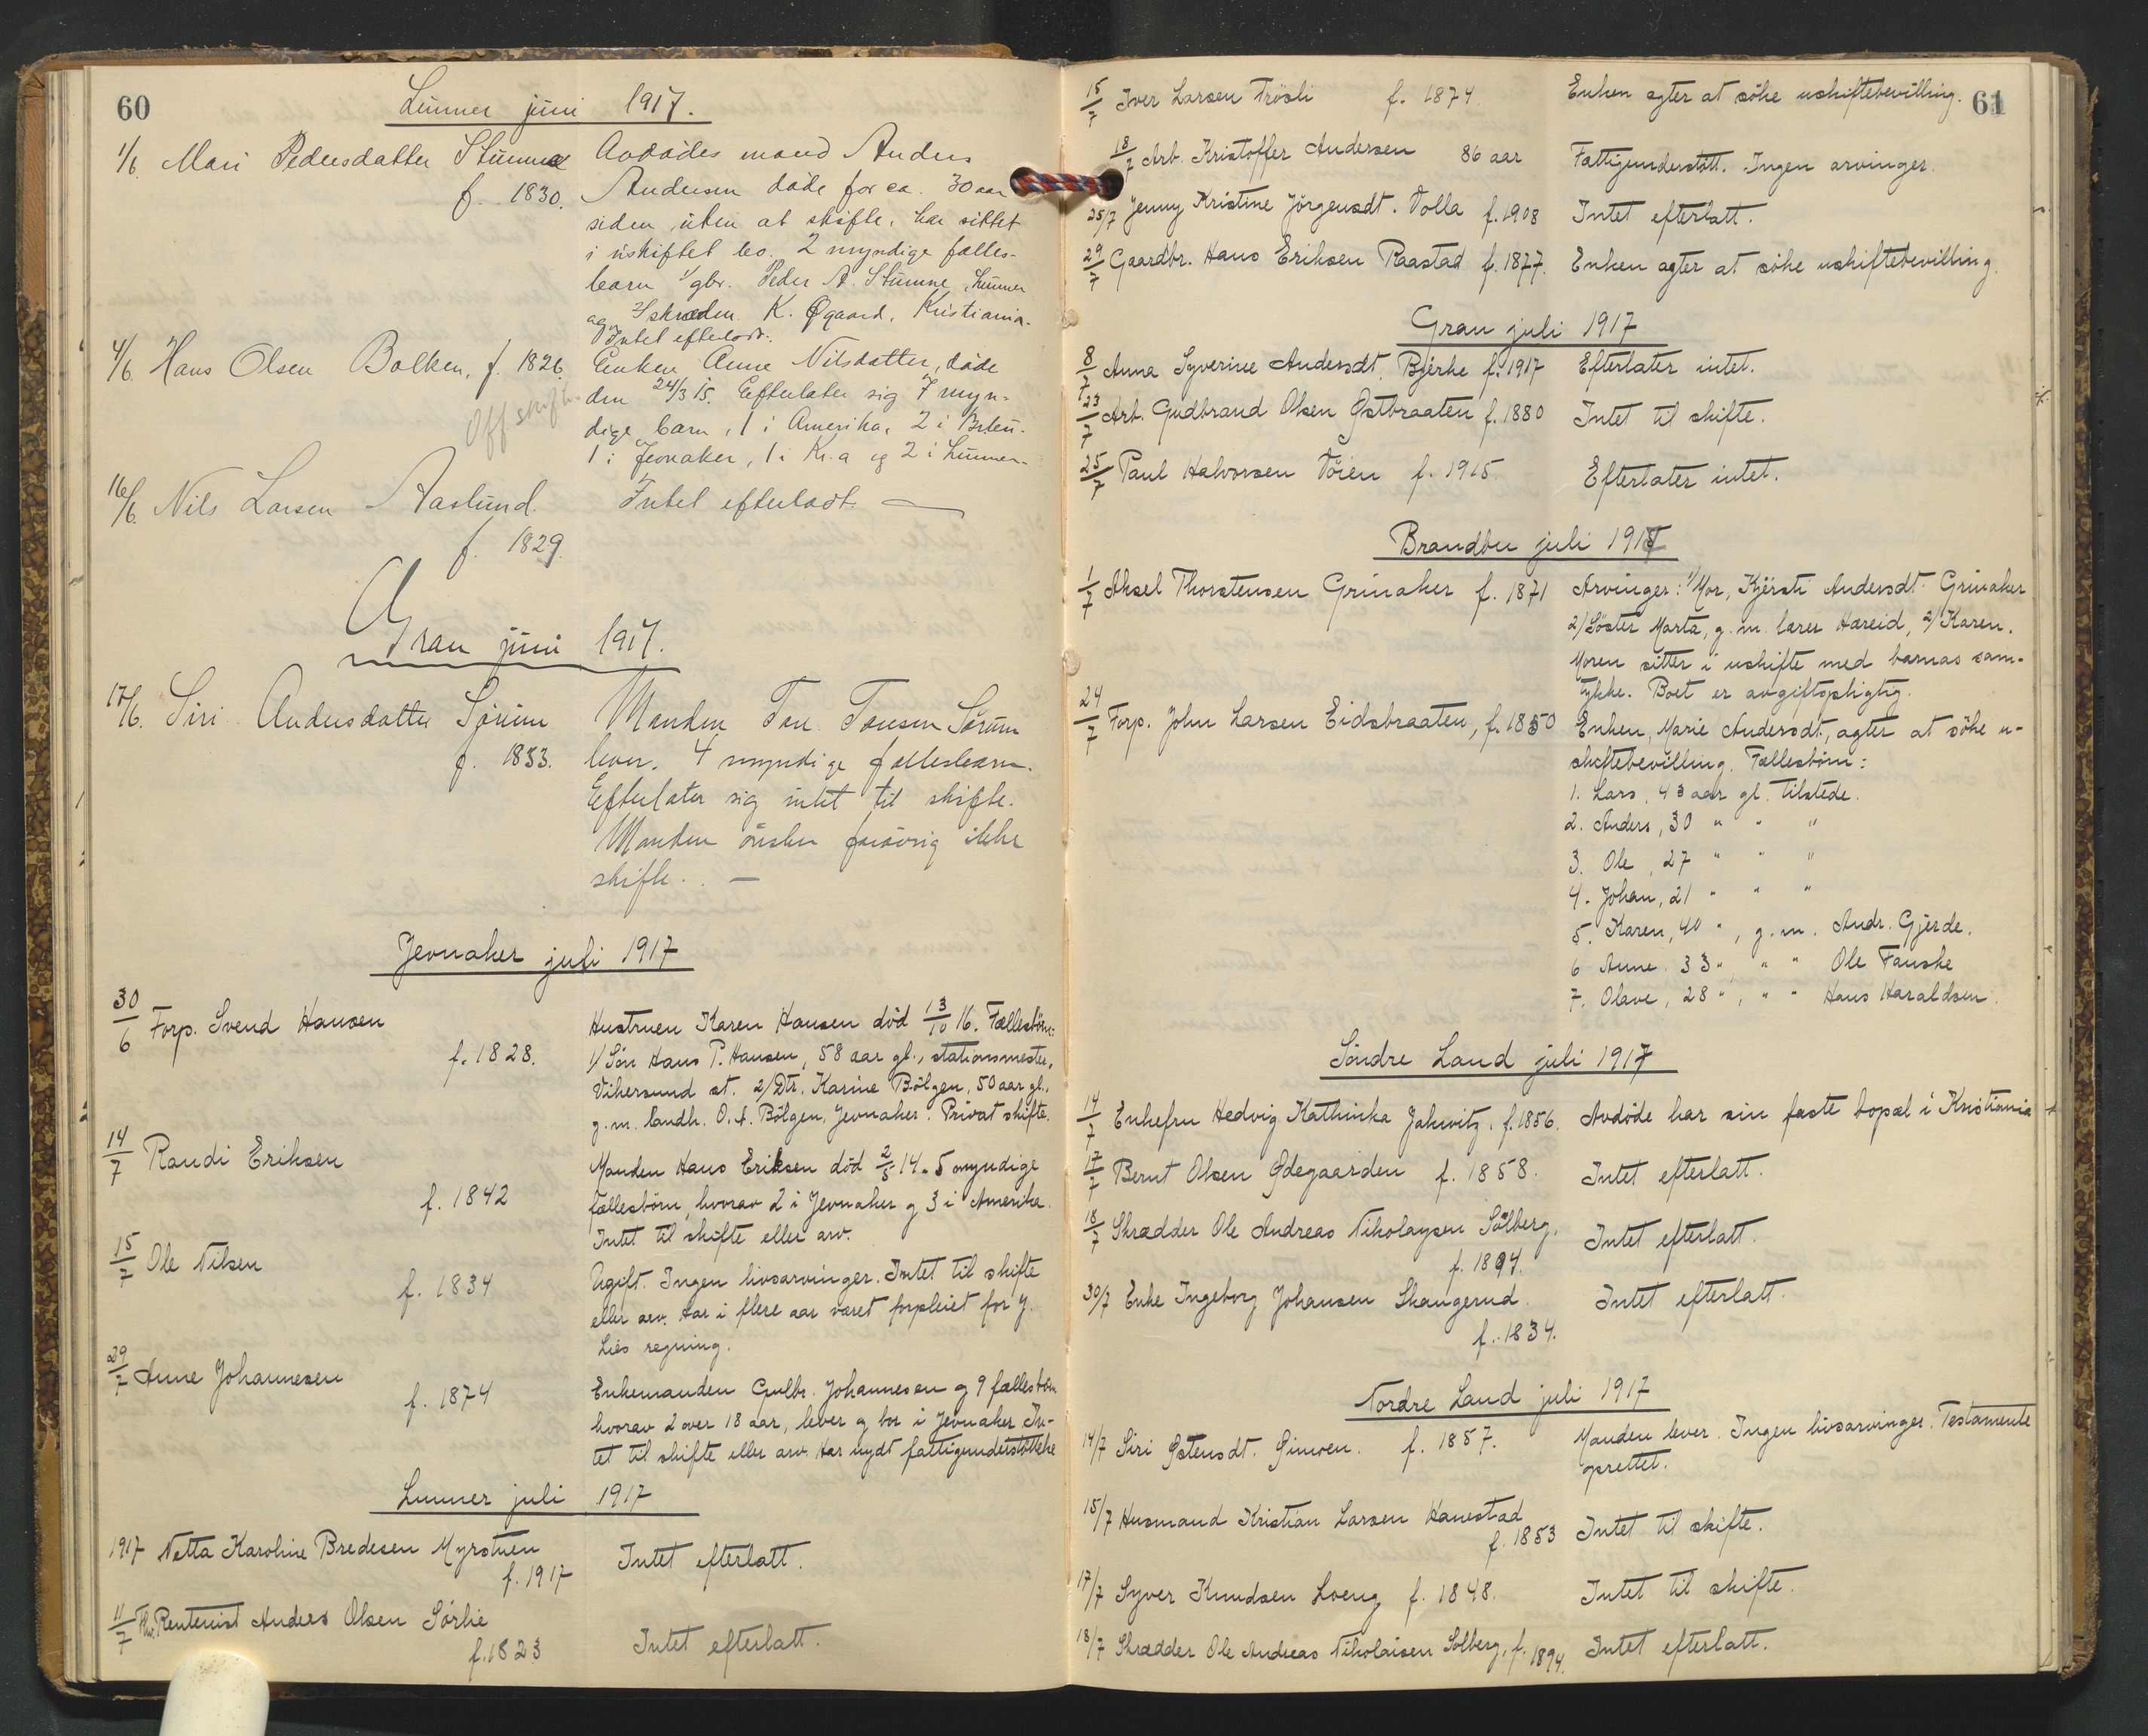 60
Lunner juni 1917.
1/6. Mari Pedersdatter Stumne
f. 1830.
Avdødes mand Anders
Andersen døde for ca. 30 aar
siden uten at skifte, har sittet
i uskiftet bo. 2 myndige fælles-
barn 1/ gbr. Peder A. Stumne, Lunner
og 2/ skræder K. Øgaard, Kristiania.
Intet efterladt.
4/6. Hans Olsen Bolken, f. 1826.
Off skifte.
Enken Anne Nilsdatter, døde
den 24/3 15. Efterlater sig 7 myn-
dige barn, 1 i Amerika, 2 i
1 i Jevnaker, 1 i Kr.a og 2 i Lunner.
16/6. Nils Larsen Aaslund.
f. 1829.
Intet efterladt. —
Gran juni 1917.
17/6. Siri Andersdatter Sørum
f. 1833.
Manden Tor Torsen Sørum
lever. 4 myndige fællesbarn.
Efterlater sig intet til skifte.
Manden ønsker forøvrig ikke
skifte. —
Jevnaker juli 1917
30/6 Forp. Svend Hansen
f. 1828.
Hustruen Karen Hansen död 13/10 16. Fællesbörn:
1/ Sön Hans P. Hansen, 58 aar gl., stationsmester,
Vikersund st. 2/ Dtr. Karine Bölgen, 50 aar gl.,
g.m. landh. O. A. Bölgen, Jevnaker. Privat skifte.
14/7 Randi Eriksen
f. 1842
Manden Hans Eriksen död 2/5 14. 5 myndige
fællesbörn, hvorav 2 i Jevnaker og 3 i Amerika.
Intet til skifte eller arv.
15/7 Ole Nilsen
f. 1834
Ugift. Ingen livsarvinger. Intet til skifte
eller arv. Har i flere aar været forpleiet for J.
Lies regning.
29/7 Anne Johannesen
f. 1874
Enkemanden Gulbr. Johannesen og 9 fællesbörn
hvorav 2 over 18 aar, lever og bor i Jevnaker. In-
tet til skifte eller arv. Har nydt fattigunderstöttelse
Lunner juli 1917
1917 Netta Karoline Bredesen Myrstuen
f. 1917
Intet efterlatt.
11/7 Fhv. Rentenist Anders Olsen Sörlie
f. 1823
Intet efterlatt.
61
15/7 Iver Larsen Trösli f. 1874
Enken agter at söke uskiftebevilling.
18/7 Arb. Kristoffer Andersen 86 aar
Fattigunderstött. Ingen arvinger.
25/7 Jenny Kristine Jörgensdt. Volla f. 1908
Intet efterlatt.
29/7 Gaardbr. Hans Eriksen Raastad f. 1877.
Enken agter at söke uskiftebevilling.
Gran juli 1917
8/7 Anna Syverine Andersdt. Bjerke f. 1917
Efterlater intet.
23/7 Arb. Gudbrand Olsen Östbraaten f. 1880
Intet til skifte.
25/7 Paul Halvorsen Töien f. 1915
Efterlater intet.
Brandbu juli 1917
1/7 Aksel Thorstensen Grinaker f. 1871
Arvinger: 1/ Mor, Kjersti Andersdt. Grinaker
2/ Söster Marta, g.m. lærer Hareid, 2/ Karen.
Moren sitter i uskifte med barnas sam-
tykke. Boet er avgiftspligtig.
24/7 Forp. John Larsen Eidsbraaten, f. 1850
Enken, Marie Andersdt., agter at söke u-
skiftebevilling. Fællesbörn:
1. Lars, 43 aar gl. tilstede.
2. Anders, 30 " " "
3. Ole, 27 " " "
4. Johan, 21 " " "
5. Karen, 40 ", g.m. Andr. Gjerde.
6 Anne 33 " " " Ole Fauske
7. Olave, 28 ", " " Hans Haraldsen.
Söndre Land juli 1917
14/7 Enkefru Hedvig Kathinka Jakwitz. f. 1856.
Avdöde har sin faste bopæl i Kristiania
17/7 Bernt Olsen Ödegaarden f. 1858.
Intet efterlatt.
18/7 Skrædder Ole Andreas Nikolaysen Sölberg,
f. 1894.
Intet efterlatt.
30/7 Enke Ingeborg Johansen Skaugerud.
f. 1834.
Intet efterlatt.
Nordre Land juli 1917
14/7 Siri Östensdt. Simoen. f. 1857.
Manden lever. Ingen livsarvinger. Testamente
oprettet.
15/7 Husmand Kristian Larsen Hanestad
f. 1853
Intet til skifte.
17/7 Syver Knudsen Loeng f. 1848.
Intet til skifte.
18/7 Skrædder Ole Andreas Nikolaisen Solberg, f. 1894.
Intet efterlatt.